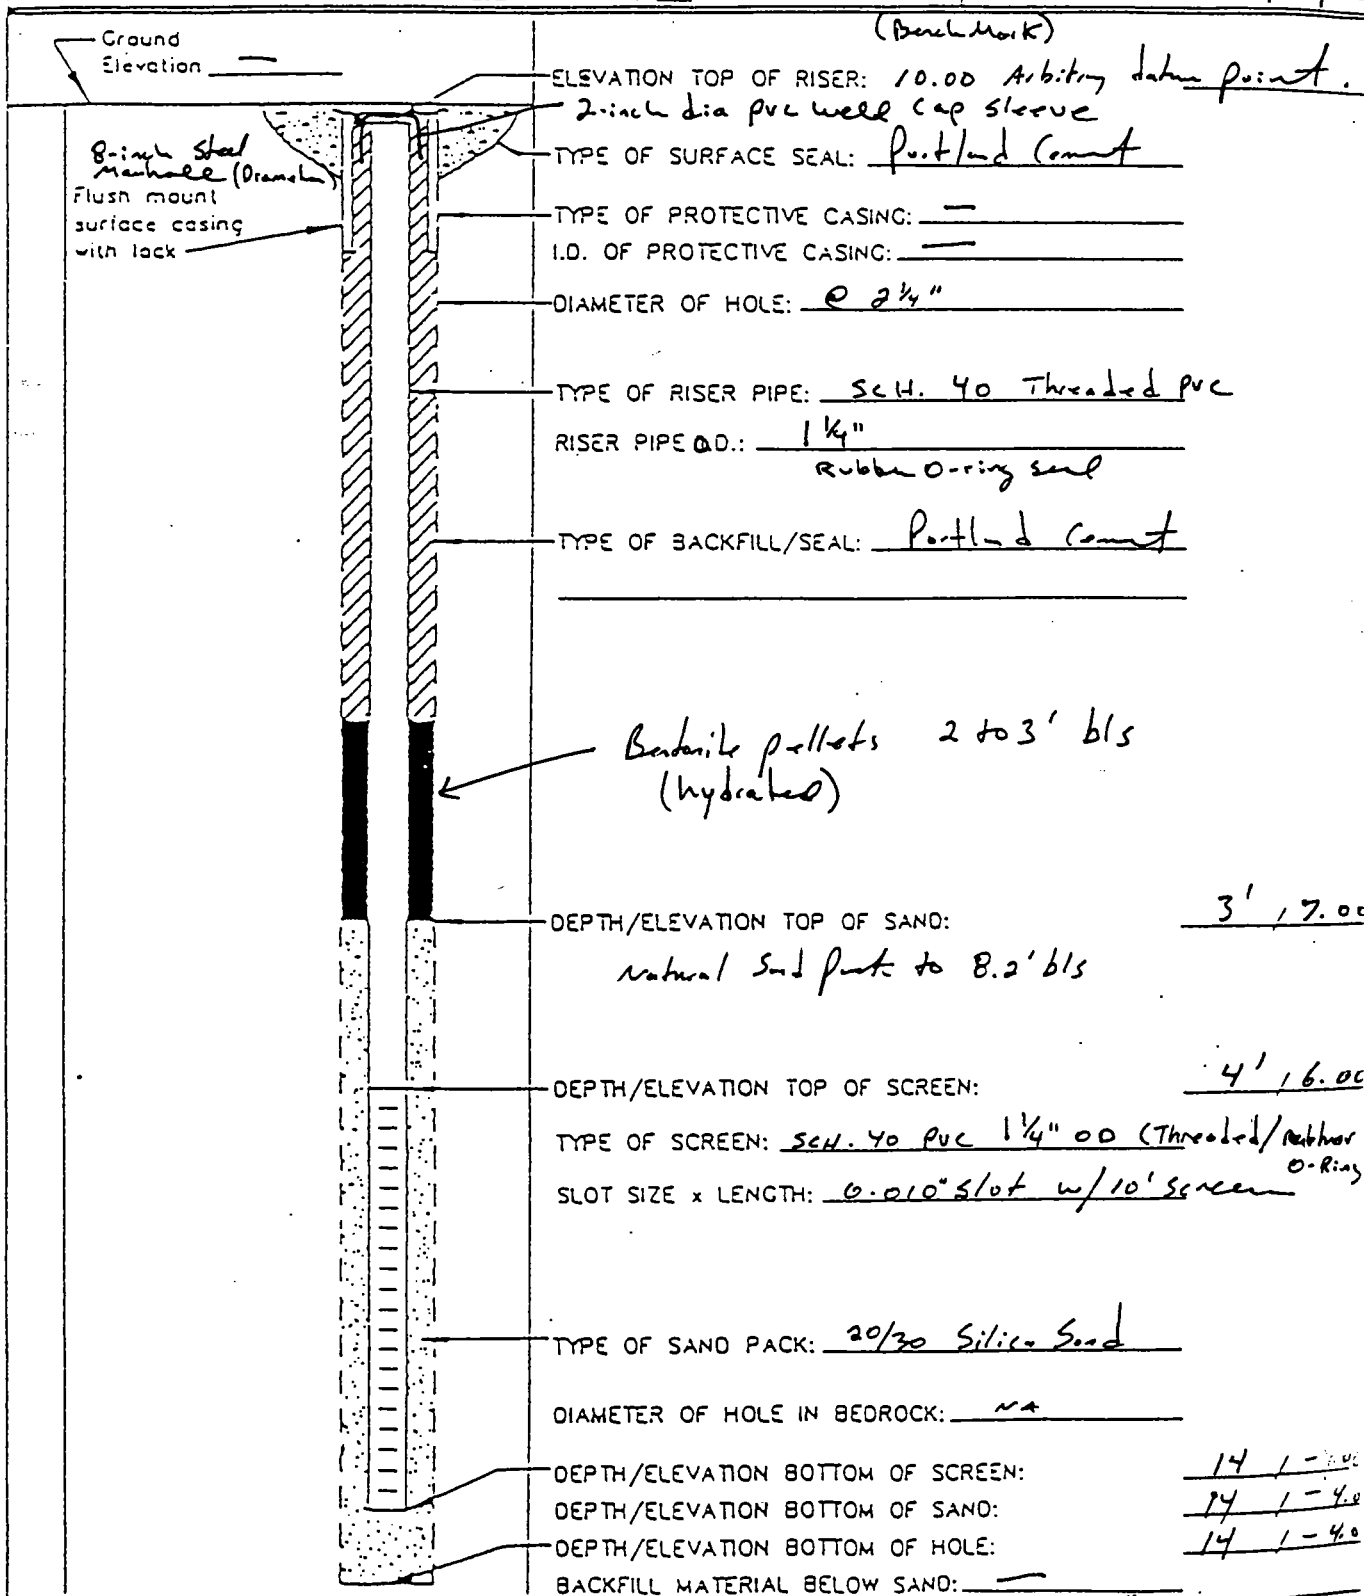 (Benchmark)
Ground
Elevation —
ELEVATION TOP OF RISER: 10.00 Arbitrary datum point.
2-inch dia pvc well cap sleeve
8-inch Steel
Manhole (Diameter)
TYPE OF SURFACE SEAL: Portland Cement
Flush mount
surface casing
with lock
TYPE OF PROTECTIVE CASING: —
I.D. OF PROTECTIVE CASING: —
DIAMETER OF HOLE: @ 2 1/4"
TYPE OF RISER PIPE: SCH. 40 Threaded PVC
RISER PIPE O.D.: 1 1/4"
Rubber O-ring seal
TYPE OF BACKFILL/SEAL: Portland Cement
Bentonite pellets 2 to 3' bls
(hydrated)
DEPTH/ELEVATION TOP OF SAND: 3' / 7.00
Natural Sand Pack to 8.2' bls
DEPTH/ELEVATION TOP OF SCREEN: 4' / 6.00
TYPE OF SCREEN: SCH. 40 PVC 1 1/4" OD (Threaded/
O-Ring
SLOT SIZE x LENGTH: 0.010" slot w/ 10' screen
TYPE OF SAND PACK: 20/30 Silica Sand
DIAMETER OF HOLE IN BEDROCK: NA
DEPTH/ELEVATION BOTTOM OF SCREEN: 14 /
DEPTH/ELEVATION BOTTOM OF SAND: 14 / -4.0
DEPTH/ELEVATION BOTTOM OF HOLE: 14 / -4.0
BACKFILL MATERIAL BELOW SAND: —